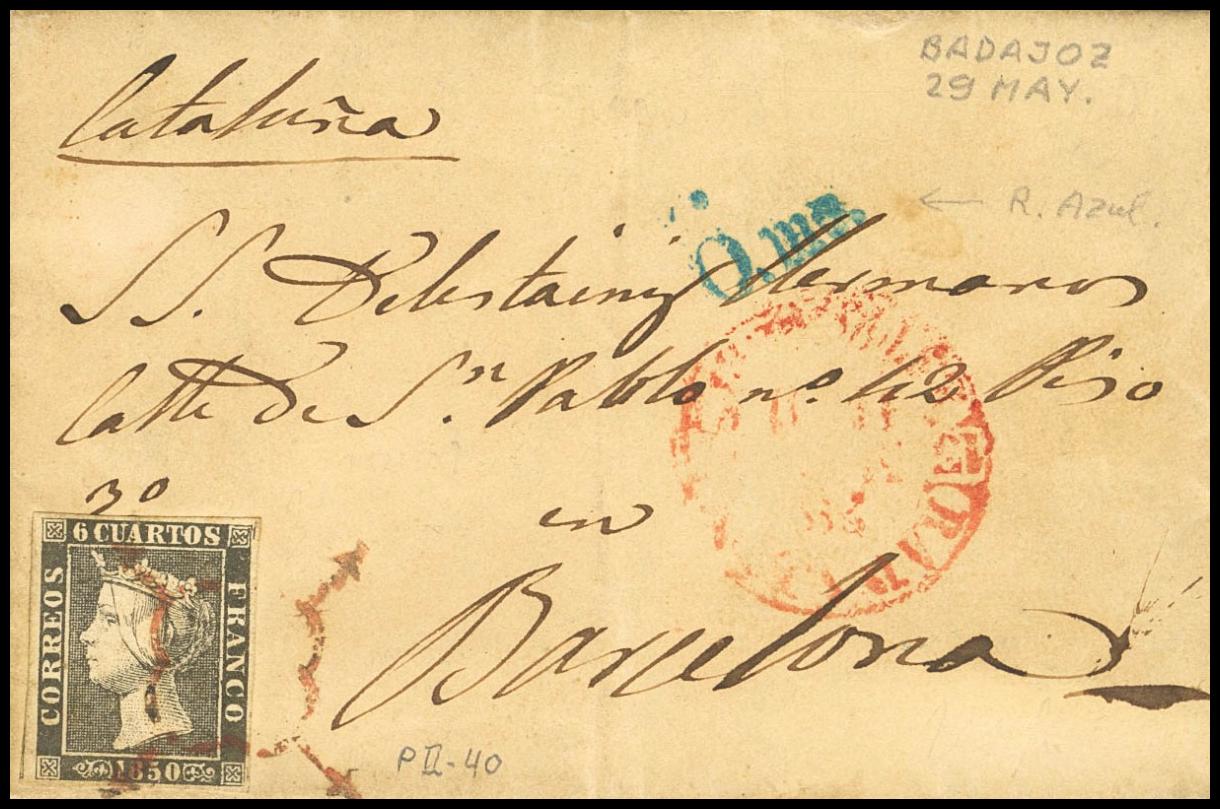 BADAJOZ
29 MAY.
Cataluña
← R. Azul.
Q.ms.
SS. Hermanos
Calle de Sn. Pablo nº. 42 Piso
3º
en
Barcelona
6 CUARTOS
CORREOS
FRANCO
1850
PII-40